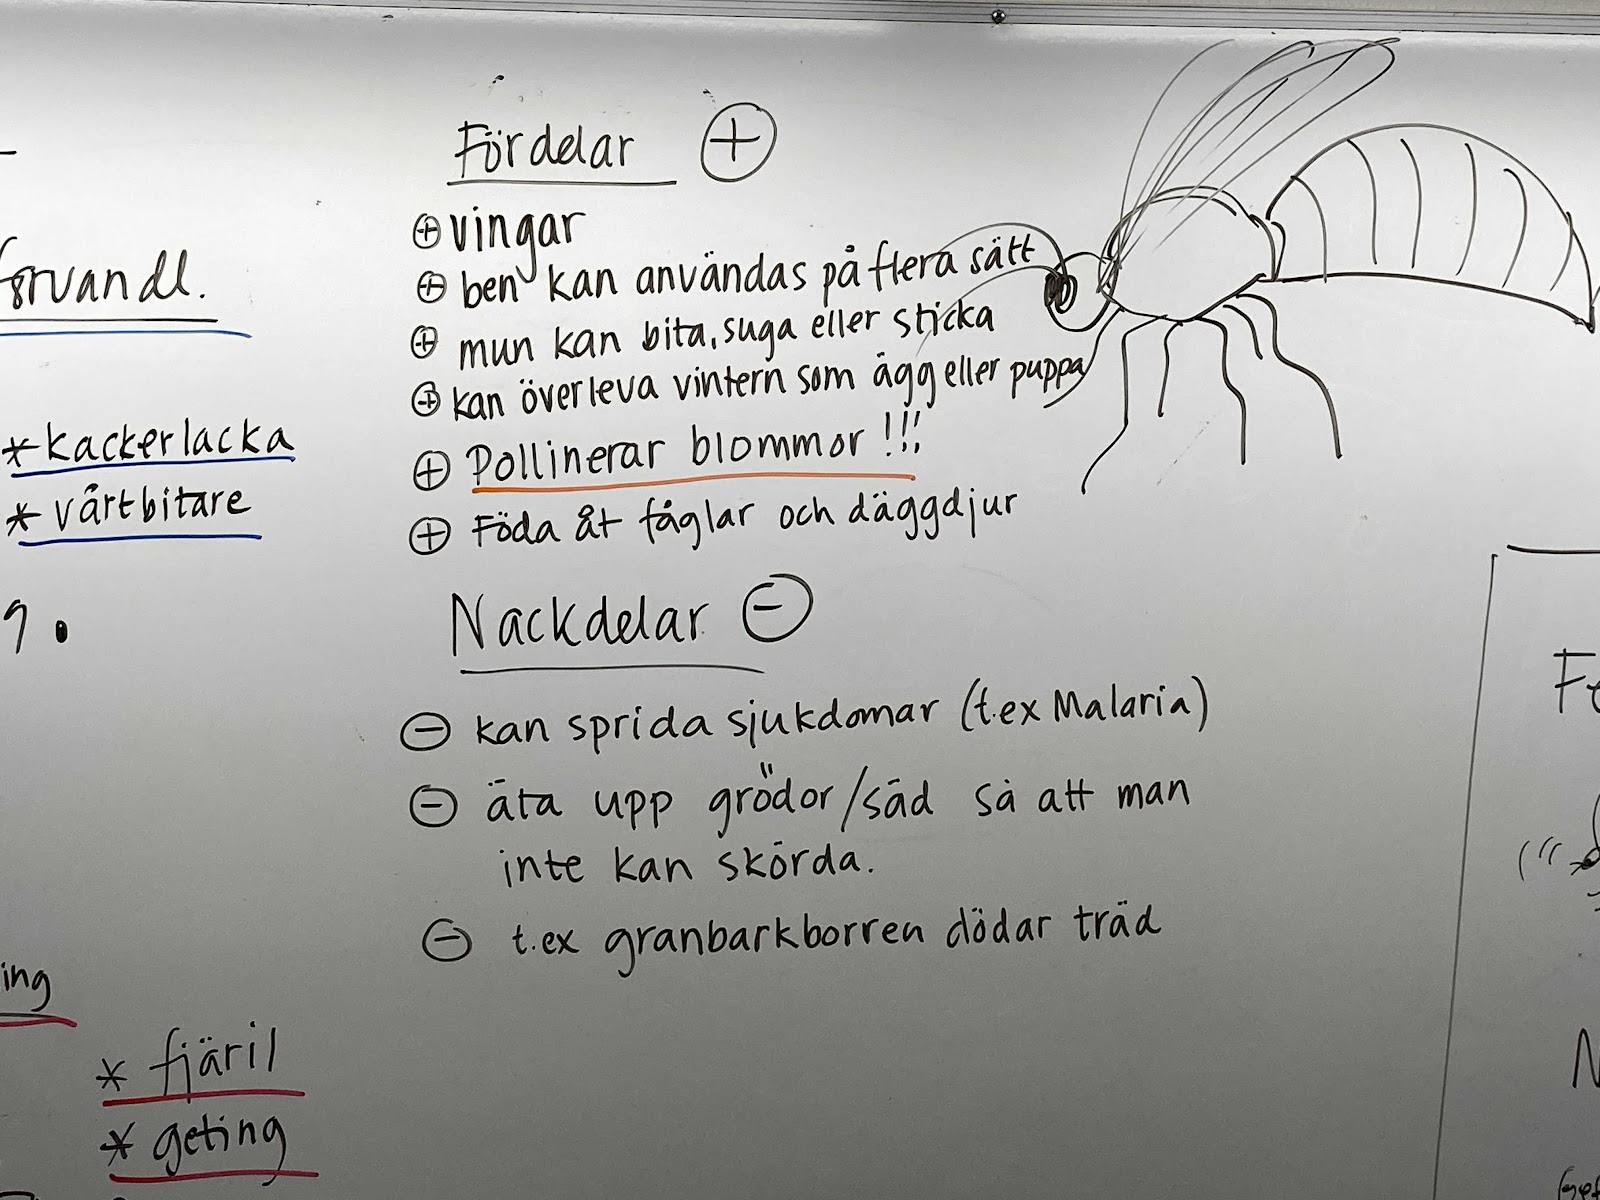 Fördelar +
+ vingar
+ ben kan användas på flera sätt
+ mun kan bita, suga eller sticka
+ kan överleva vintern som ägg eller puppa
+ Pollinerar blommor!!!
+ Föda åt fåglar och däggdjur
Nackdelar -
- kan sprida sjukdomar (t.ex Malaria)
- äta upp grödor/säd så att man
inte kan skörda.
- t.ex granbarkborren dödar träd
förvandl.
* kackerlacka
* vårtbitare
ing
* fjäril
* geting
Fe
N